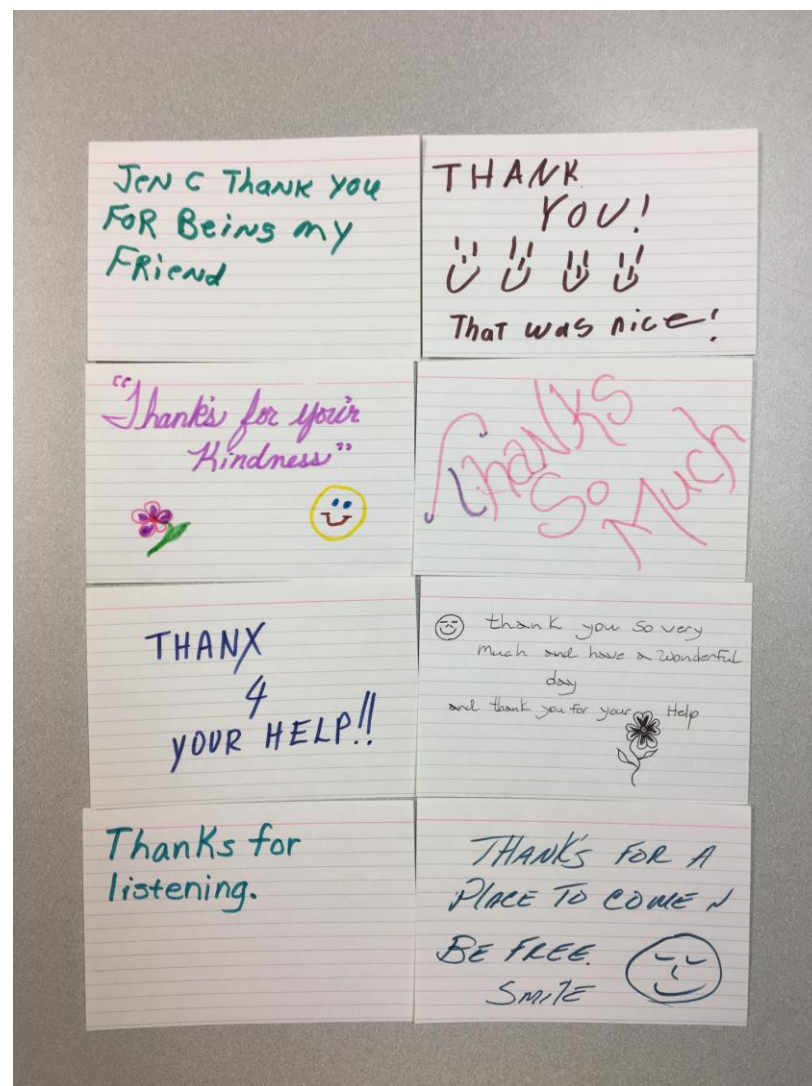 JeN C ThaNK you
FoR BeiNg my
FRieNd
THANK
YOU!
That was nice!
"Thank's for you'r
Kindness"
ThaNKS
So
Much
THANX
4
YOUR HELP!!
thank you so very
much and have a wonderful
day
and thank you for your Help
Thanks for
listening.
THANK'S FOR A
PLACE TO COME N
BE FREE.
SMILE